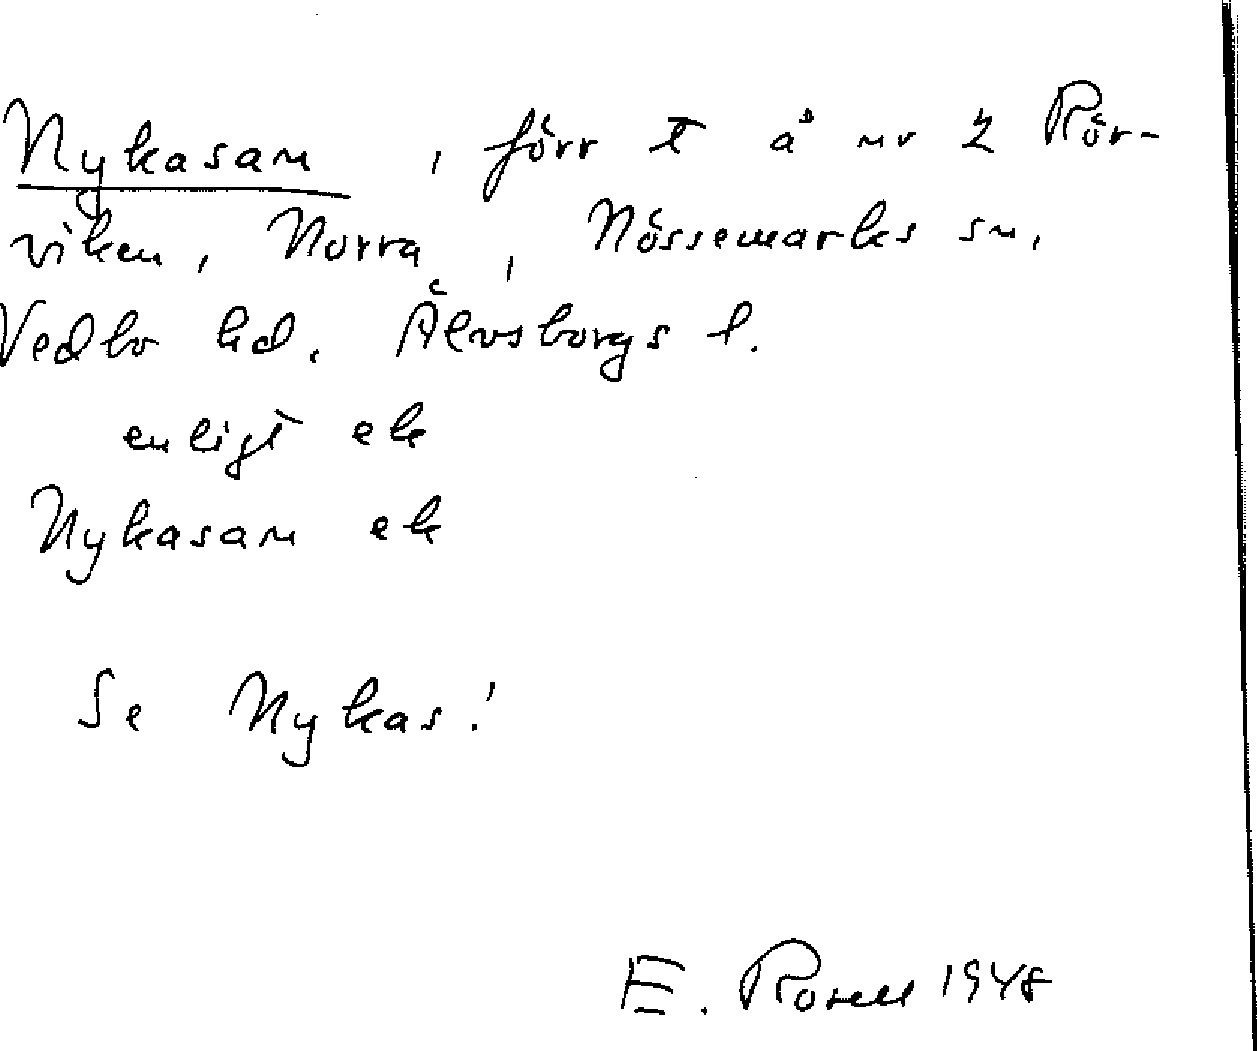 Nykasan, förr t å nr 2 Rör-
viken, Norra, Nössemarks sn,
Vedbo hd. Älvsborgs l.
enligt ek
Nykasan ek
Se Nykas!
E. Rosell 1948